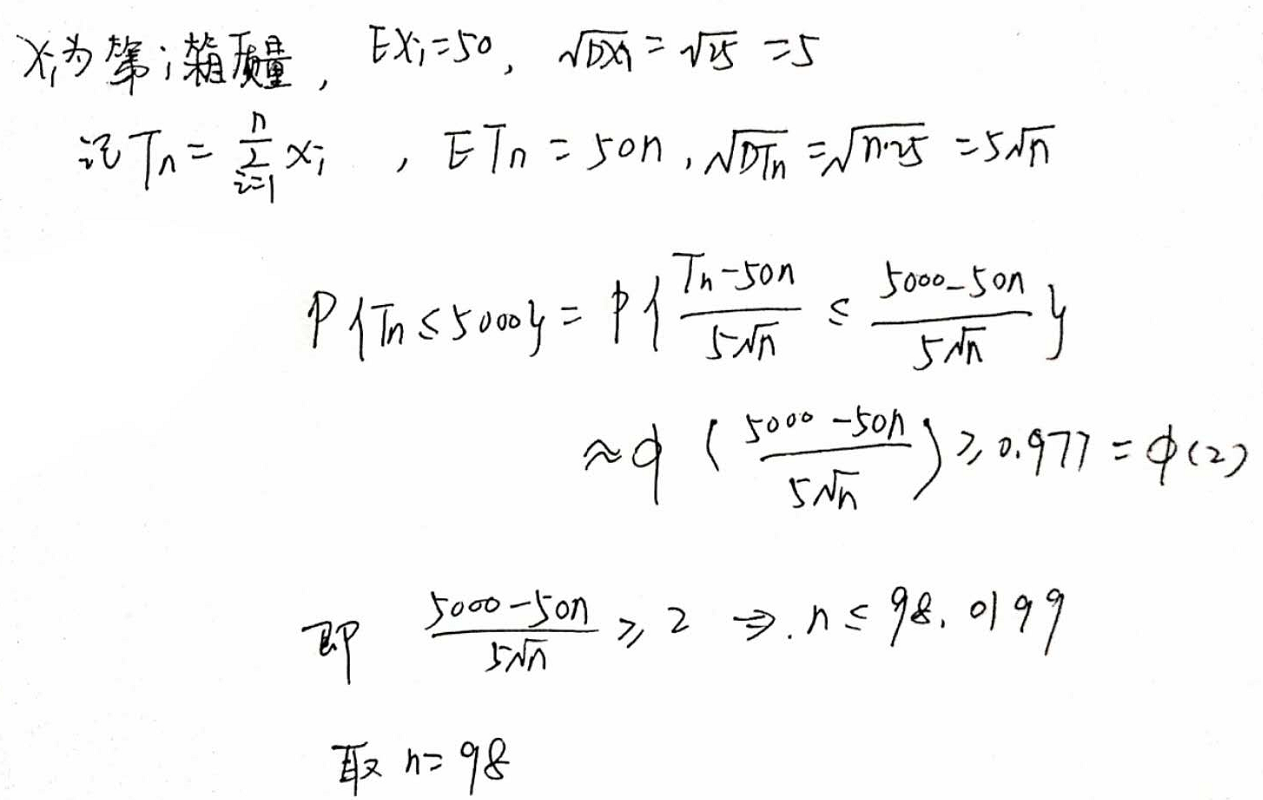 Xi为第i箱质量, EXi=50, √DXi = √25 =5
记 Tn = ∑_{i=1}^{n} Xi , ETn = 50n, √DTn = √n·25 = 5√n
P{Tn ≤ 5000} = P{(Tn-50n)/(5√n) ≤ (5000-50n)/(5√n)}
≈ φ((5000-50n)/(5√n)) ≥ 0.977 = φ(2)
即 (5000-50n)/(5√n) ≥ 2 ⇒. n ≤ 98.0199
取 n=98